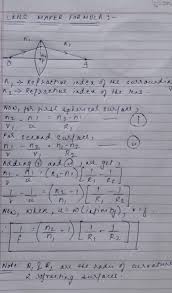 LENS MAKER FORMULA :-
n₁ n₁
O A
n₁ → refractive index of the surrounding
n₂ → Refractive index of the lens.
Now, for first spherical surface,
n₂/v₁ - n₁/u = n₂-n₁/R₁ — (i)
For second surface,
Adding (i) and (ii), we get,
n₁/v - n₁/u = (n₂-n₁) [1/R₁ - 1/R₂]
1/v - 1/u = (n₂/n₁ - 1) [1/R₁ - 1/R₂]
Now, when, u = ∞ (infinity), v = f
1/f = (n₂/n₁ - 1) [1/R₁ - 1/R₂]
Note: R₁ & R₂ are the radii of curvature
2 refracting surfaces.